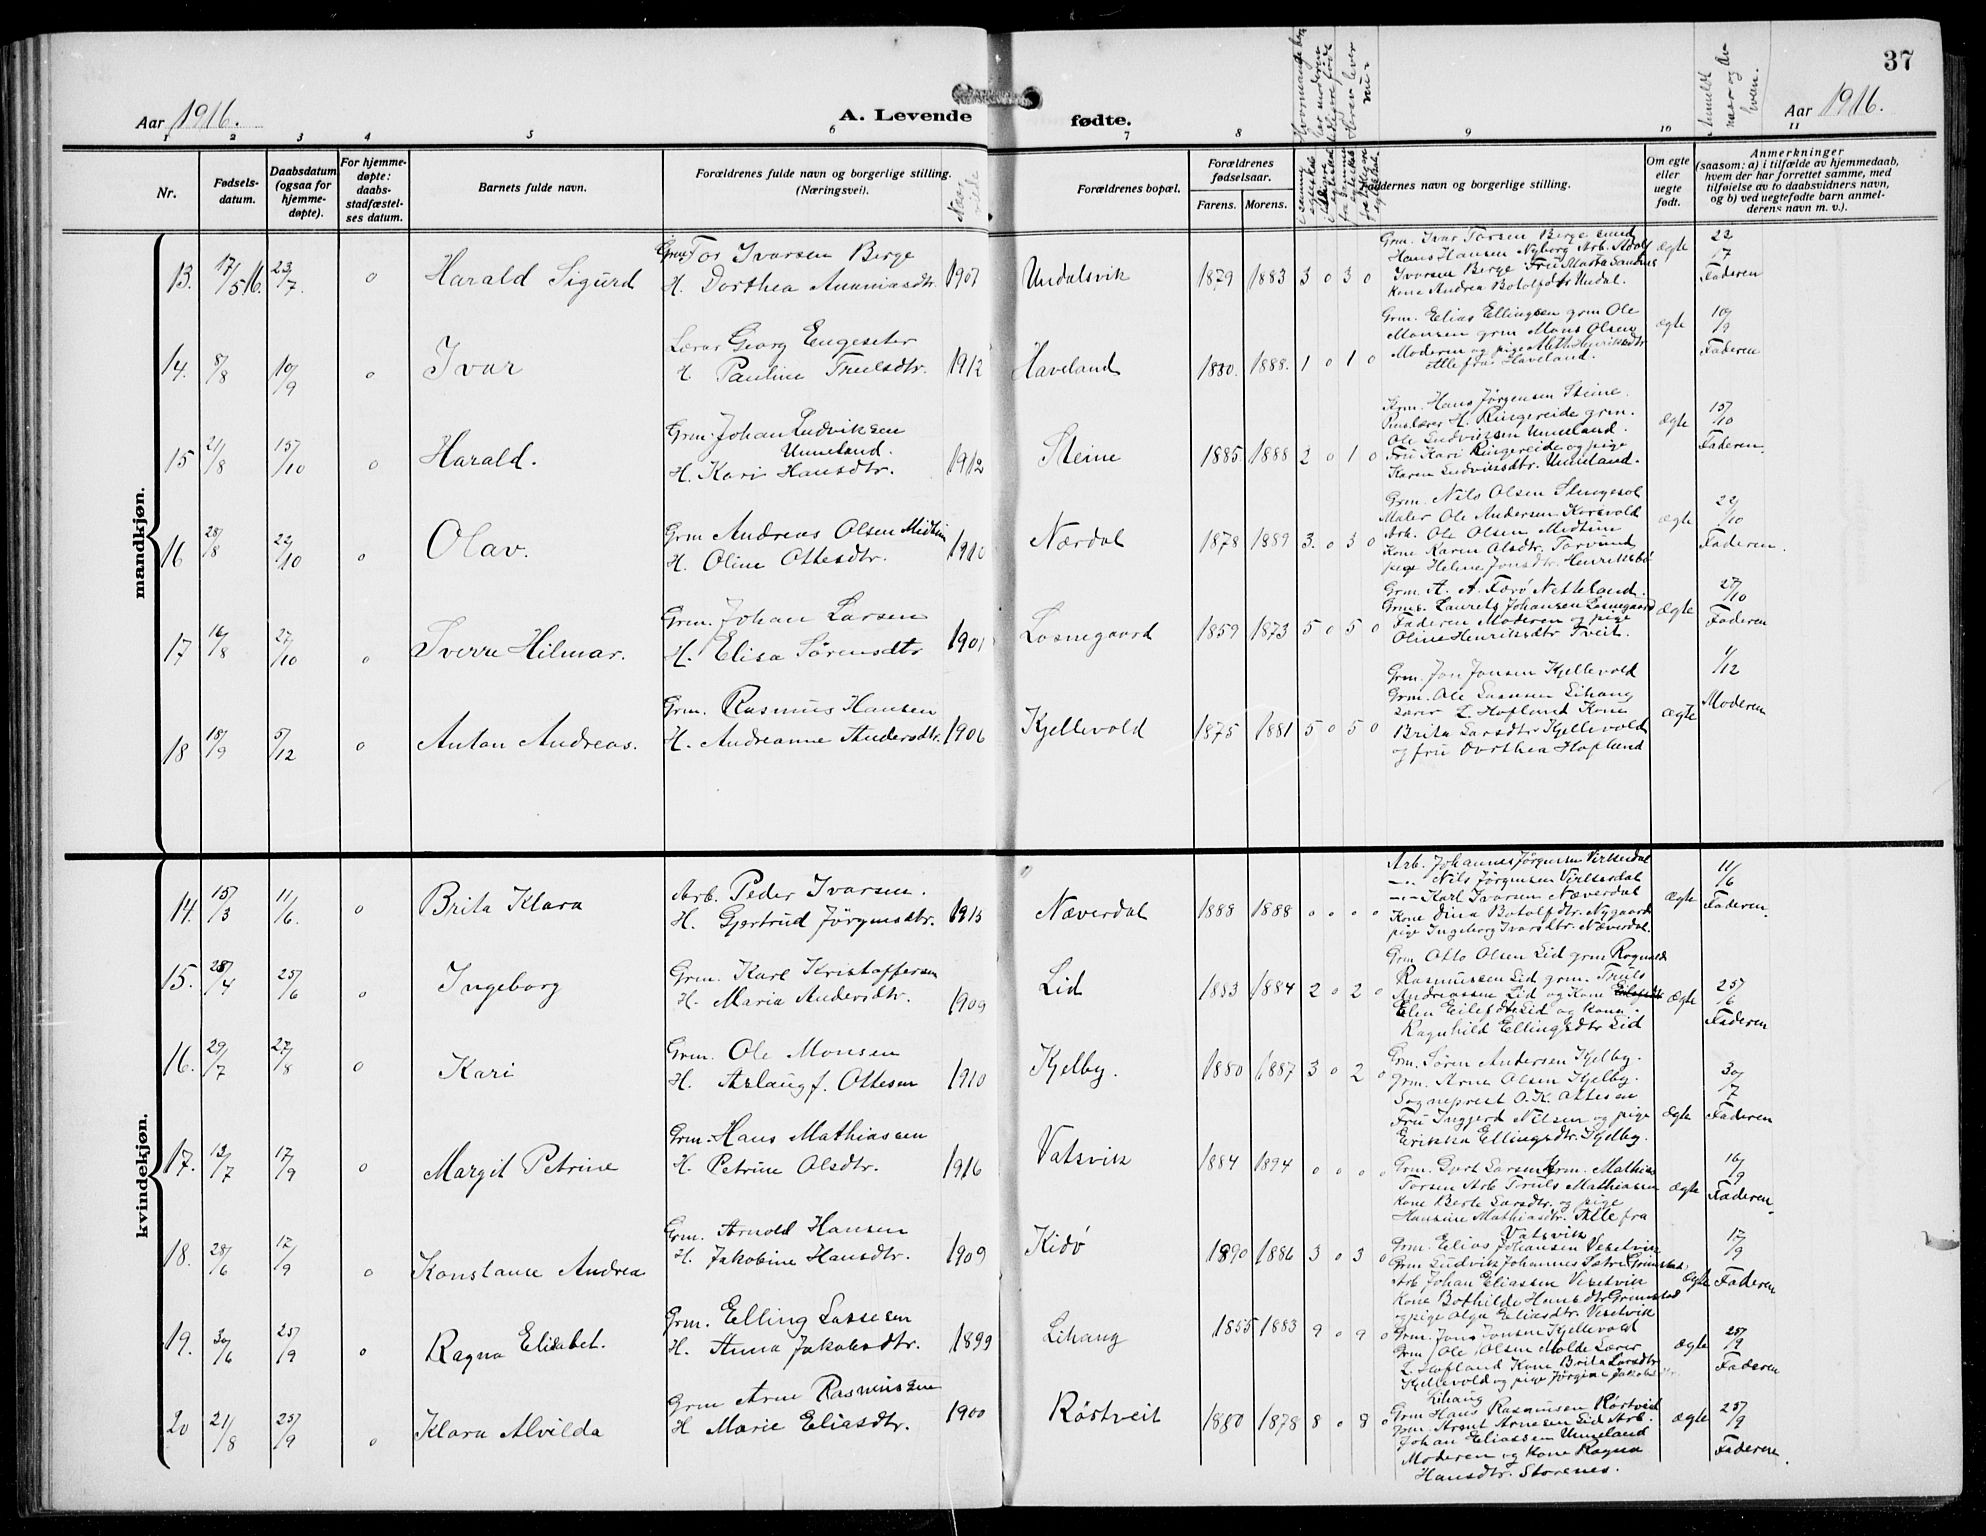 37
Aar 1916.
A. Levende fødte.
Aar 1916.
Nr.
Fødsels-datum.
Daabsdatum (ogsaa for hjemme-døpte).
For hjemme-døpte: daabs-stadfæstel-ses datum.
Barnets fulde navn.
Forældrenes fulde navn og borgerlige stilling. (Næringsvei).
Naar viede
Forældrenes bopæl.
Forældrenes fødselsaar.
Farens. Morens.
Faddernes navn og borgerlige stilling.
Om egte eller uegte født.
Anmeldt naar og av hvem.
Anmerkninger
(saasom: a) i tilfælde av hjemmedaab, hvem der har forrettet samme, med tilføielse av to daabsvidners navn, og b) ved uegtefødte barn anmel-derens navn m. v.).
mandkjøn.
13. 17/5 16. 23/7. o Harald Sigurd
Grm Tor Ivarsen Berge
H. Dorthea Ananiasdtr. 1907 Undalsvik 1879 1883 3 o 3 o
Grm. Ivar Torsen Berge smed
Hans Hansen Nyborg Arb. Adolf
Ivarsen Berge Fru Marta Sandnes
Kone Andrea Botolfdtr Undal.
ægte 22/7 Faderen
14. 8/8 10/9 o Ivar
Lærer Georg Engeseter
H. Pauline Trulsdtr. 1912 Haveland 1880. 1888. 1 o 1 o
Grm. Elias Ellingsen grm Ole
Monsen grm Mons Olsen
Moderen og pige Aleth Henriksdtr
Alle fra Haveland.
ægte 10/9 Faderen
15 21/8 15/10 o Harald.
Grm. Johan Ludviksen
Unneland.
H. Kari Hansdtr. 1912 Steine 1885 1888 2 o 1 o
Grm. Hans Jörgensen Steine
Pens.lærer H. Ringereide grm.
Ole Ludviksen Unneland.
Fru Kari Ringereide og pige
Karen Ludviksdtr. Unneland.
ægte 15/10 Faderen
16 28/8 22/10 o Olav.
Grm Andreas Olsen Midtun
H. Oline Ottesdtr. 1910 Nærdal 1878 1889 3. o 3 o
Grm. Nils Olsen
Maler Ole Andersen Korsvold
Arb. Ole Olsen Midtun
Kone Karen Olsdtr. Torvund
pige Helene Jonsdtr. Henriksbö
ægte 22/10 Faderen.
17 16/8 27/10 o Sverre Hilmar.
Grm. Johan Larsen
H. Elisa Sørensdtr 1901 Losnegaard 1859 1873 5 o 5 o
Grm. A. A. Færø Netteland.
Grms. Laurits Johansen Losnegaard
Faderen Moderen og pige
Oline Henriksdtr Tveit.
ægte 27/10 Faderen
18 15/9 5/12 o Anton Andreas.
Grm. Rasmus Hansen
H. Andreanne Andersdtr. 1906 Kjellevold 1875 1881 5 o 5 o
Grm. Jon Jonsen Kjellevold
Grm. Ole Lassesen Lihang
Lærer L. Hofland Kone
Brita Larsdtr Kjellevold
og fru Dorthea Hofland
ægte 1/12 Moderen
kvindekjøn.
14. 15/3 11/6. o Brita Klara
Arb. Peder Ivarsen.
H. Gjertrud Jörgensdtr. 1915 Næverdal 1888 1888 o o o o
Arb. Johannes Jörgensen Virkesdal
—"— Nils Jörgensen Virkesdal
—"— Karl Ivarsen Næverdal
Kone Dina Botolfdtr. Nygaard
pige Ingeborg Ivarsdtr. Næverdal.
ægte 11/6 Faderen.
15. 28/4 25/6 o Ingeborg
Grm. Karl Kristoffersen
H. Maria Andersdtr. 1909 Lid 1883 1884 2 o 2 o
Grm Otto Olsen Lid grm Rognald
Rasmussen Lid grm. Truls
Andreassen Lid og Kone
Elen Eilefdtr Lid og kone.
Ragnhild Ellingsdtr Lid
ægte 25/6 Faderen
16. 29/7 27/8 o Kari
Grm. Ole Monsen
H. Aslaug f. Ottesen 1910 Kjelby. 1880 1887 3 o 2 o
Grm. Søren Andersen Kjelby.
Grm. Arne Olsen Kjelby.
Sogneprest O. K. Ottesen
Fru Ingjerd Nilsen og pige
Erikka Ellingsdtr. Kjelby.
ægte 30/7 Faderen
17. 13/7 17/9 o Margit Petrine
Grm. Hans Mathiassen
H. Petrine Olsdtr. 1916 Vatsvik 1884 1894 o o o o
Grm. Gort Larsen Grm. Mathias
Torsen Arb Truls Mathiassen
Kone Berte Larsdtr. og pige
Hansine Mathiasdtr. Alle fra
Vatsvik
ægte 16/9 Faderen.
18. 28/6 17/9 o Konstanse Andrea
Grm. Arnold Hansen
H. Jakobine Hansdtr. 1909 Kidø 1890 1886 3 o 3 o
Grm. Elias Johansen Vesetvik
Grm Ludvik Johannes Sætre Grimstad,
Arb Johan Eliassen Vesetvik
Kone Bothilde Hansdtr Grimstad
og pige Olga Eliasdtr. Vesetvik
ægte 17/9 Faderen
19. 30/6 25/9 o Ragna Elisabet.
Grm. Elling Lassesen
H. Anna Jakobsdtr. 1899 Lihang 1855 1883 9 o 9 o
Grm. Jon Jonsen Kjellevold
Grm Ole Olsen Molde Lærer
L. Hofland Kone Brita Larsdtr
Kjellevold og pige Jörgine Jakobsdtr
Lihang
ægte 25/9 Faderen
20 21/8 25/9 o Klara Alvilda
Grm Arne Rasmussen
H Marie Eliasdtr. 1900 Röstveit 1880 1878 8 o 8 o
Grm Hans Rasmusen Röstveit
Grm. Arent Arnesen Lid Arb.
Johan Eliassen Unneland
Moderen og Kone Ragna
Hansdtr. Storenes.
ægte 25/9 Faderen.